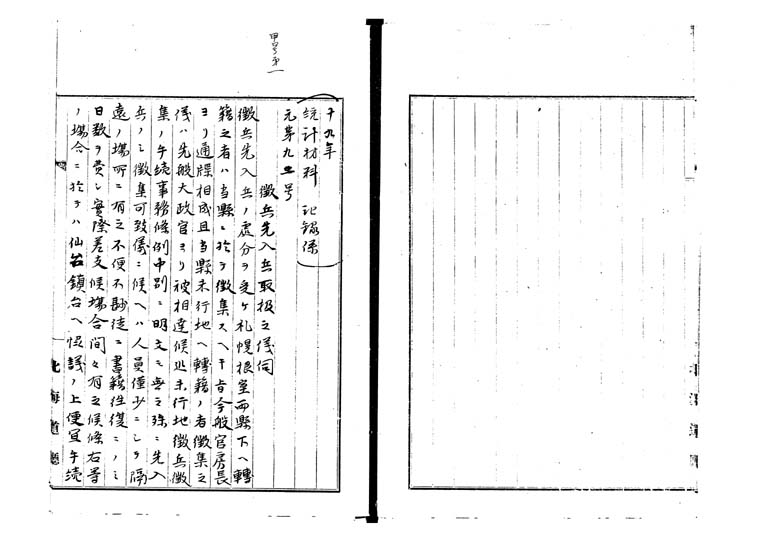 甲号第一
十九年
統計材料 記録係
元第九二号
徴兵先入兵取扱之儀伺
徴兵先入兵ノ處分ヲ受ケ札幌根室両縣下ヘ轉
籍之者ハ当縣ニ於テ徴集スヘキ旨今般官房長
ヨリ通牒相成且当縣未行地ヘ轉籍ノ者徴集之
儀ハ先般大政官ヨリ被相達候処未行地徴兵徴
集ノ手続事務條例中別ニ明文モ無之殊ニ先入
兵ノミ徴集可致儀ニ候ヘハ人員僅少ニシテ隔
遠ノ場所ニ有之不便不尠徒ニ書籍往復ニノミ
日数ヲ費シ實際差支候場合間々有之候條右等
ノ場合ニ於テハ仙台鎮台ヘ協議ノ上便宜手続
北海道廳